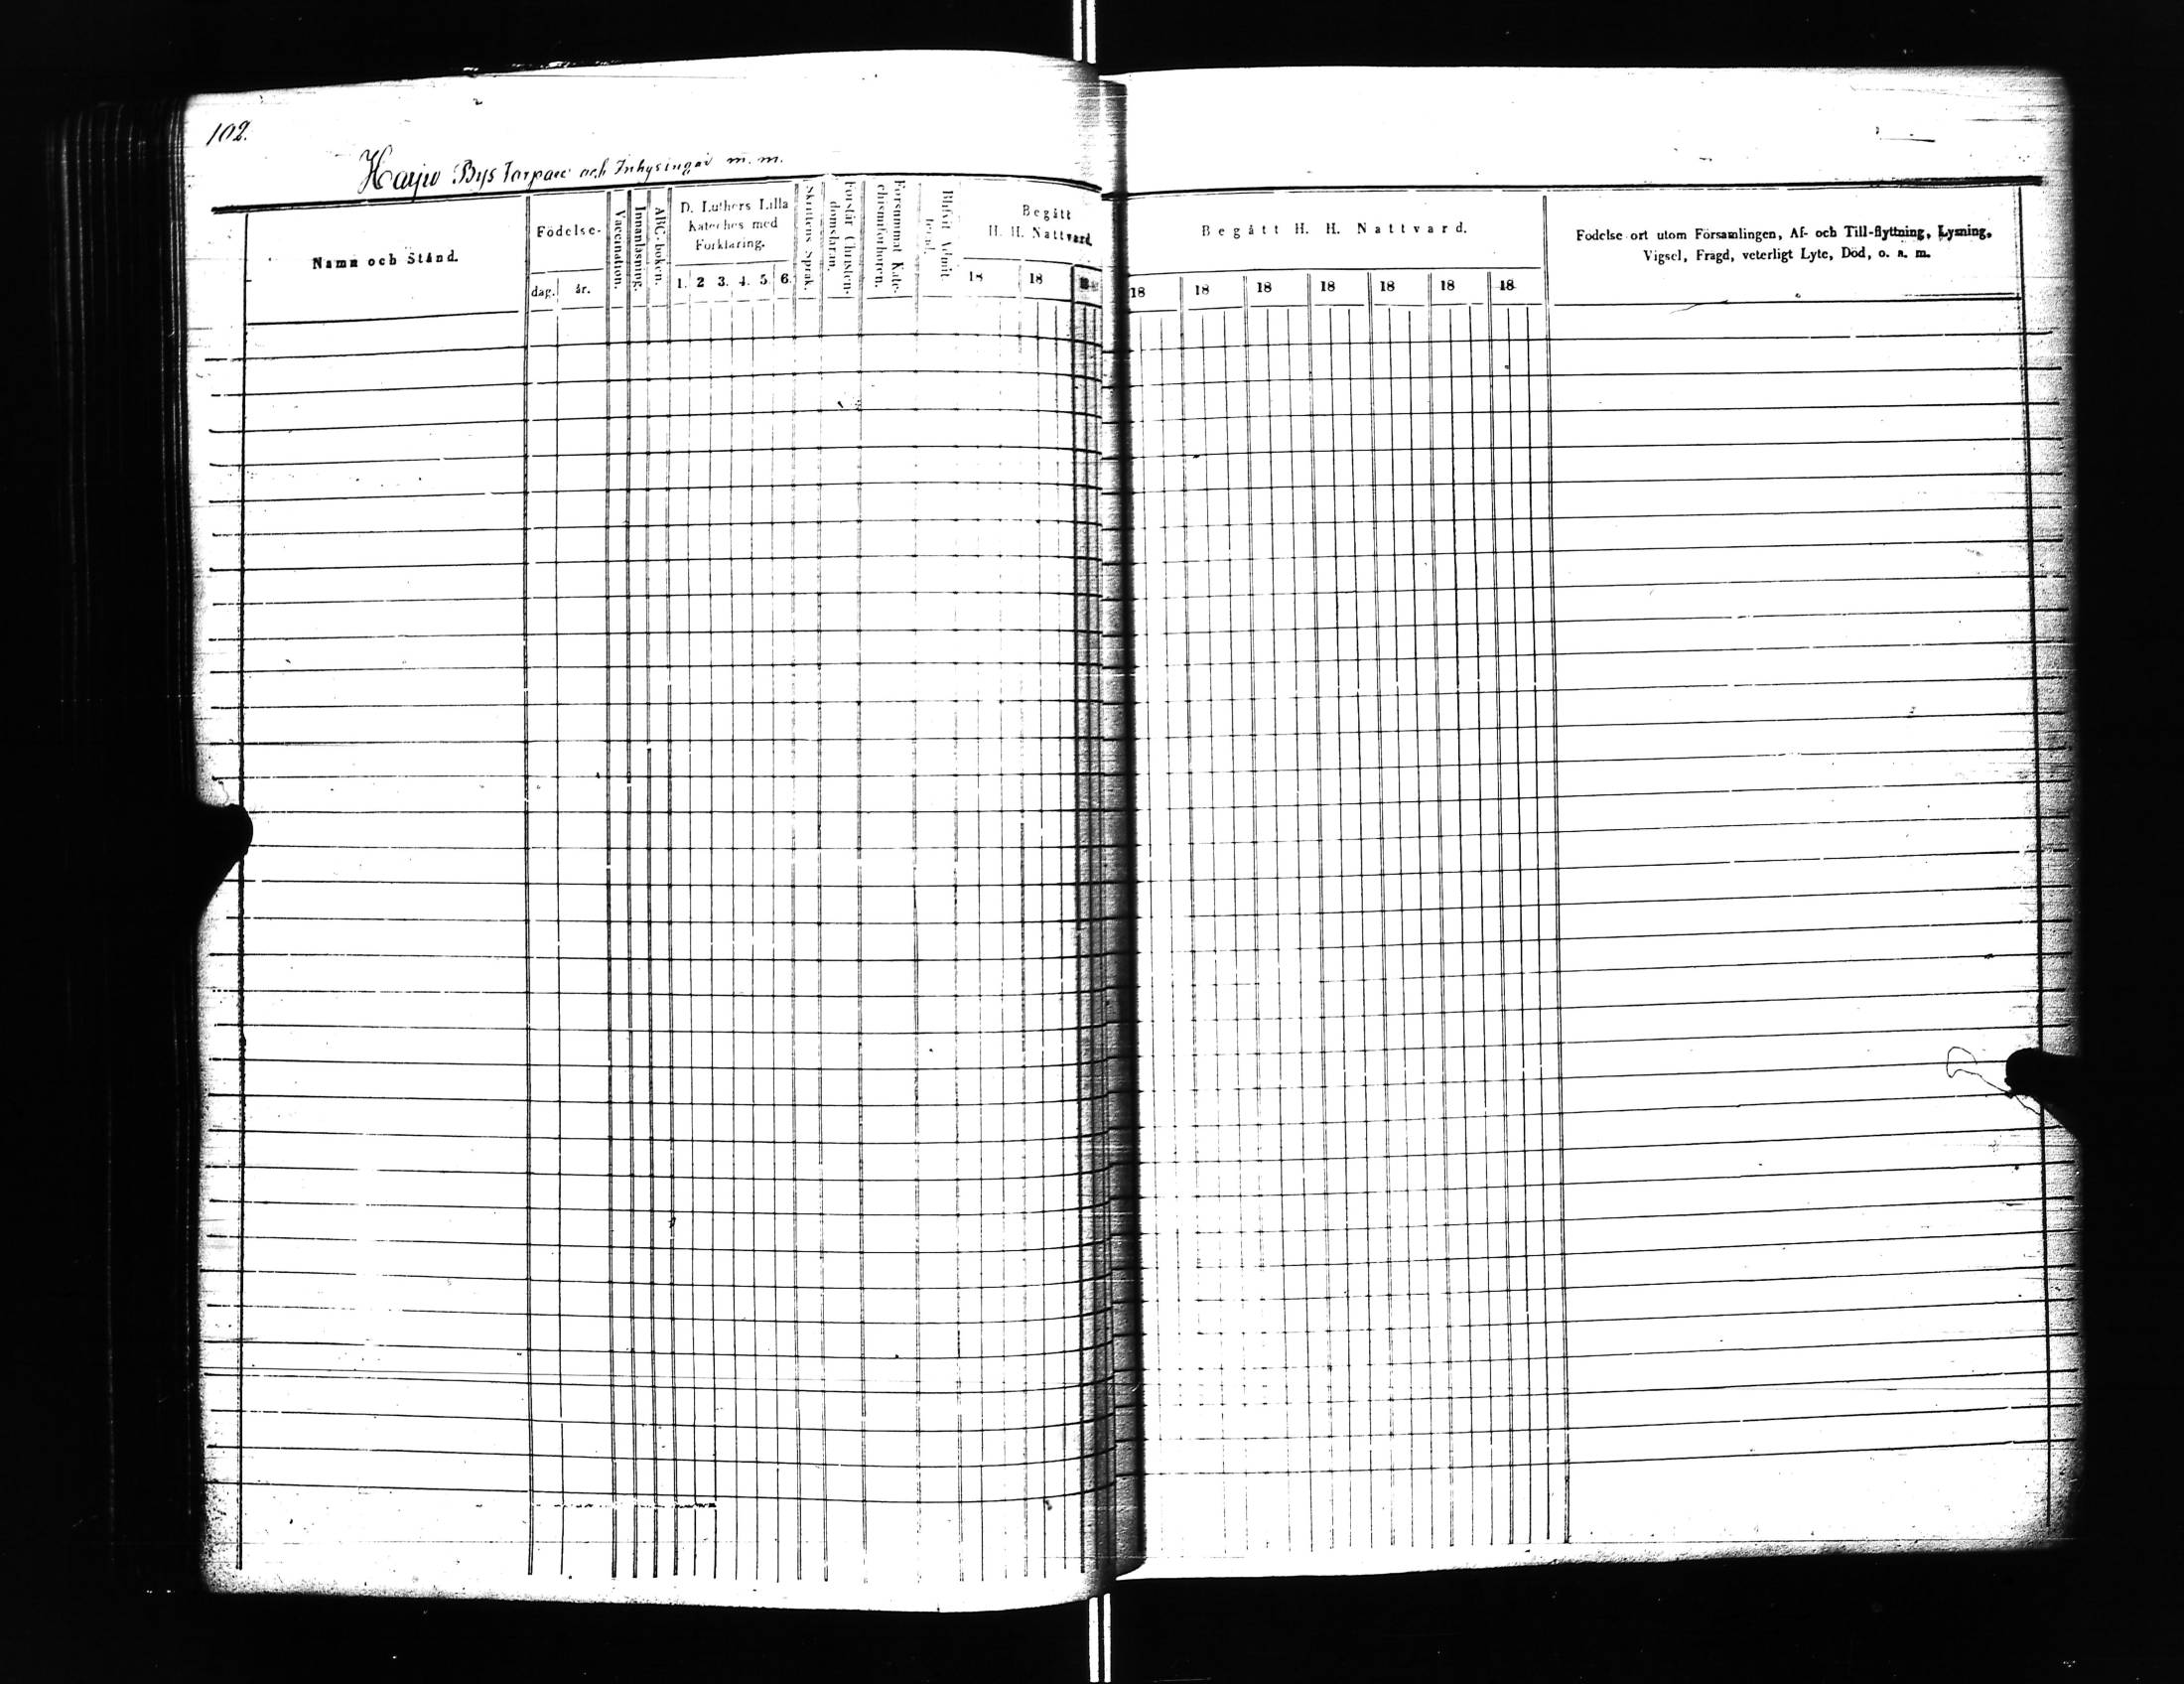 102.
Harju Bys Torpare och Inhysingar m. m.
Namn och Stånd.
Födelse-
dag. år.
Vaccination.
Innanläsning.
ABC-boken.
D. Luthers Lilla
Kateches med
Förklaring.
1. 2 3. 4. 5. 6.
Skriftens Språk.
Förstår Christen-
domsläran.
Försummat Kate-
chismiförhören.
Blifvit Admit-
terad.
Begått
H. H. Nattvard.
18 18
Begått H. H. Nattvard.
18 18 18 18 18 18 18
Födelse ort utom Församlingen, Af- och Till-flyttning, Lysning,
Vigsel, Frägd, veterligt Lyte, Död, o. s. m.